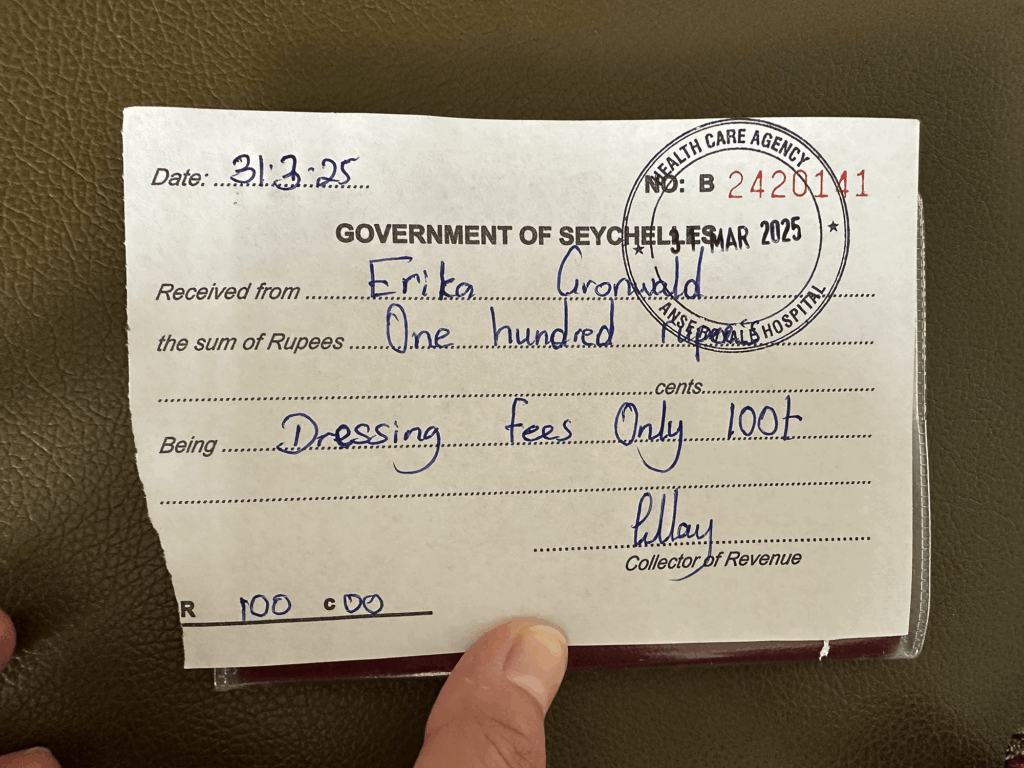 Date: 31.3.25
NO: B 2420141
HEALTH CARE AGENCY
31 MAR 2025
ANSE ROYALE HOSPITAL
GOVERNMENT OF SEYCHELLES
Received from Erika Gronwald
the sum of Rupees One hundred rupees
cents
Being Dressing fees Only 100t
Pillay
Collector of Revenue
R 100 c 00